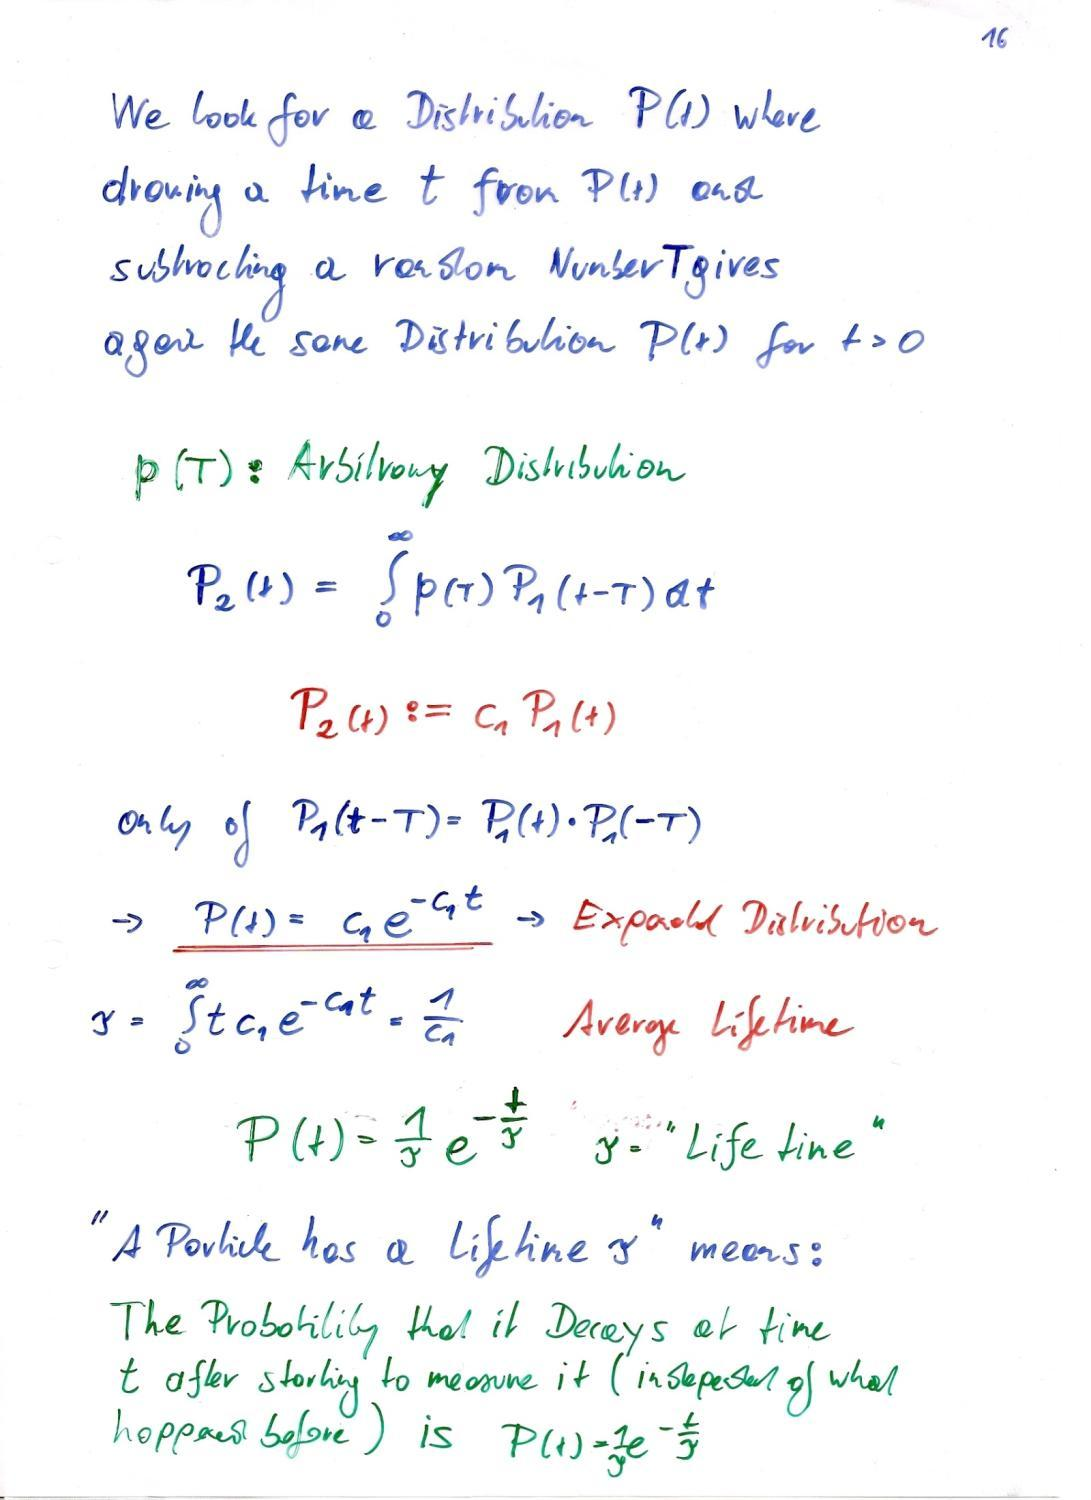 16
We look for a Distribution P(t) where
drawing a time t from P(t) and
subtracting a random Number T gives
again the same Distribution P(t) for t>0
p(T): Arbitrary Distribution
P₂(t) = ∫₀^∞ p(T) P₁(t-T) dt
P₂(t) := c₁ P₁(t)
only if P₁(t-T) = P₁(t)·P₁(-T)
→ P(t) = c₁ e^{-c₁t} → Distribution
τ = ∫₀^∞ t c₁ e^{-c₁t} = 1/c₁ Average Lifetime
P(t) = 1/τ e^{-t/τ} τ = "Life time"
"A Particle has a Lifetime τ" means:
The Probability that it Decays at time
t after starting to measure it (independent of what
happened before) is P(t) = 1/τ e^{-t/τ}